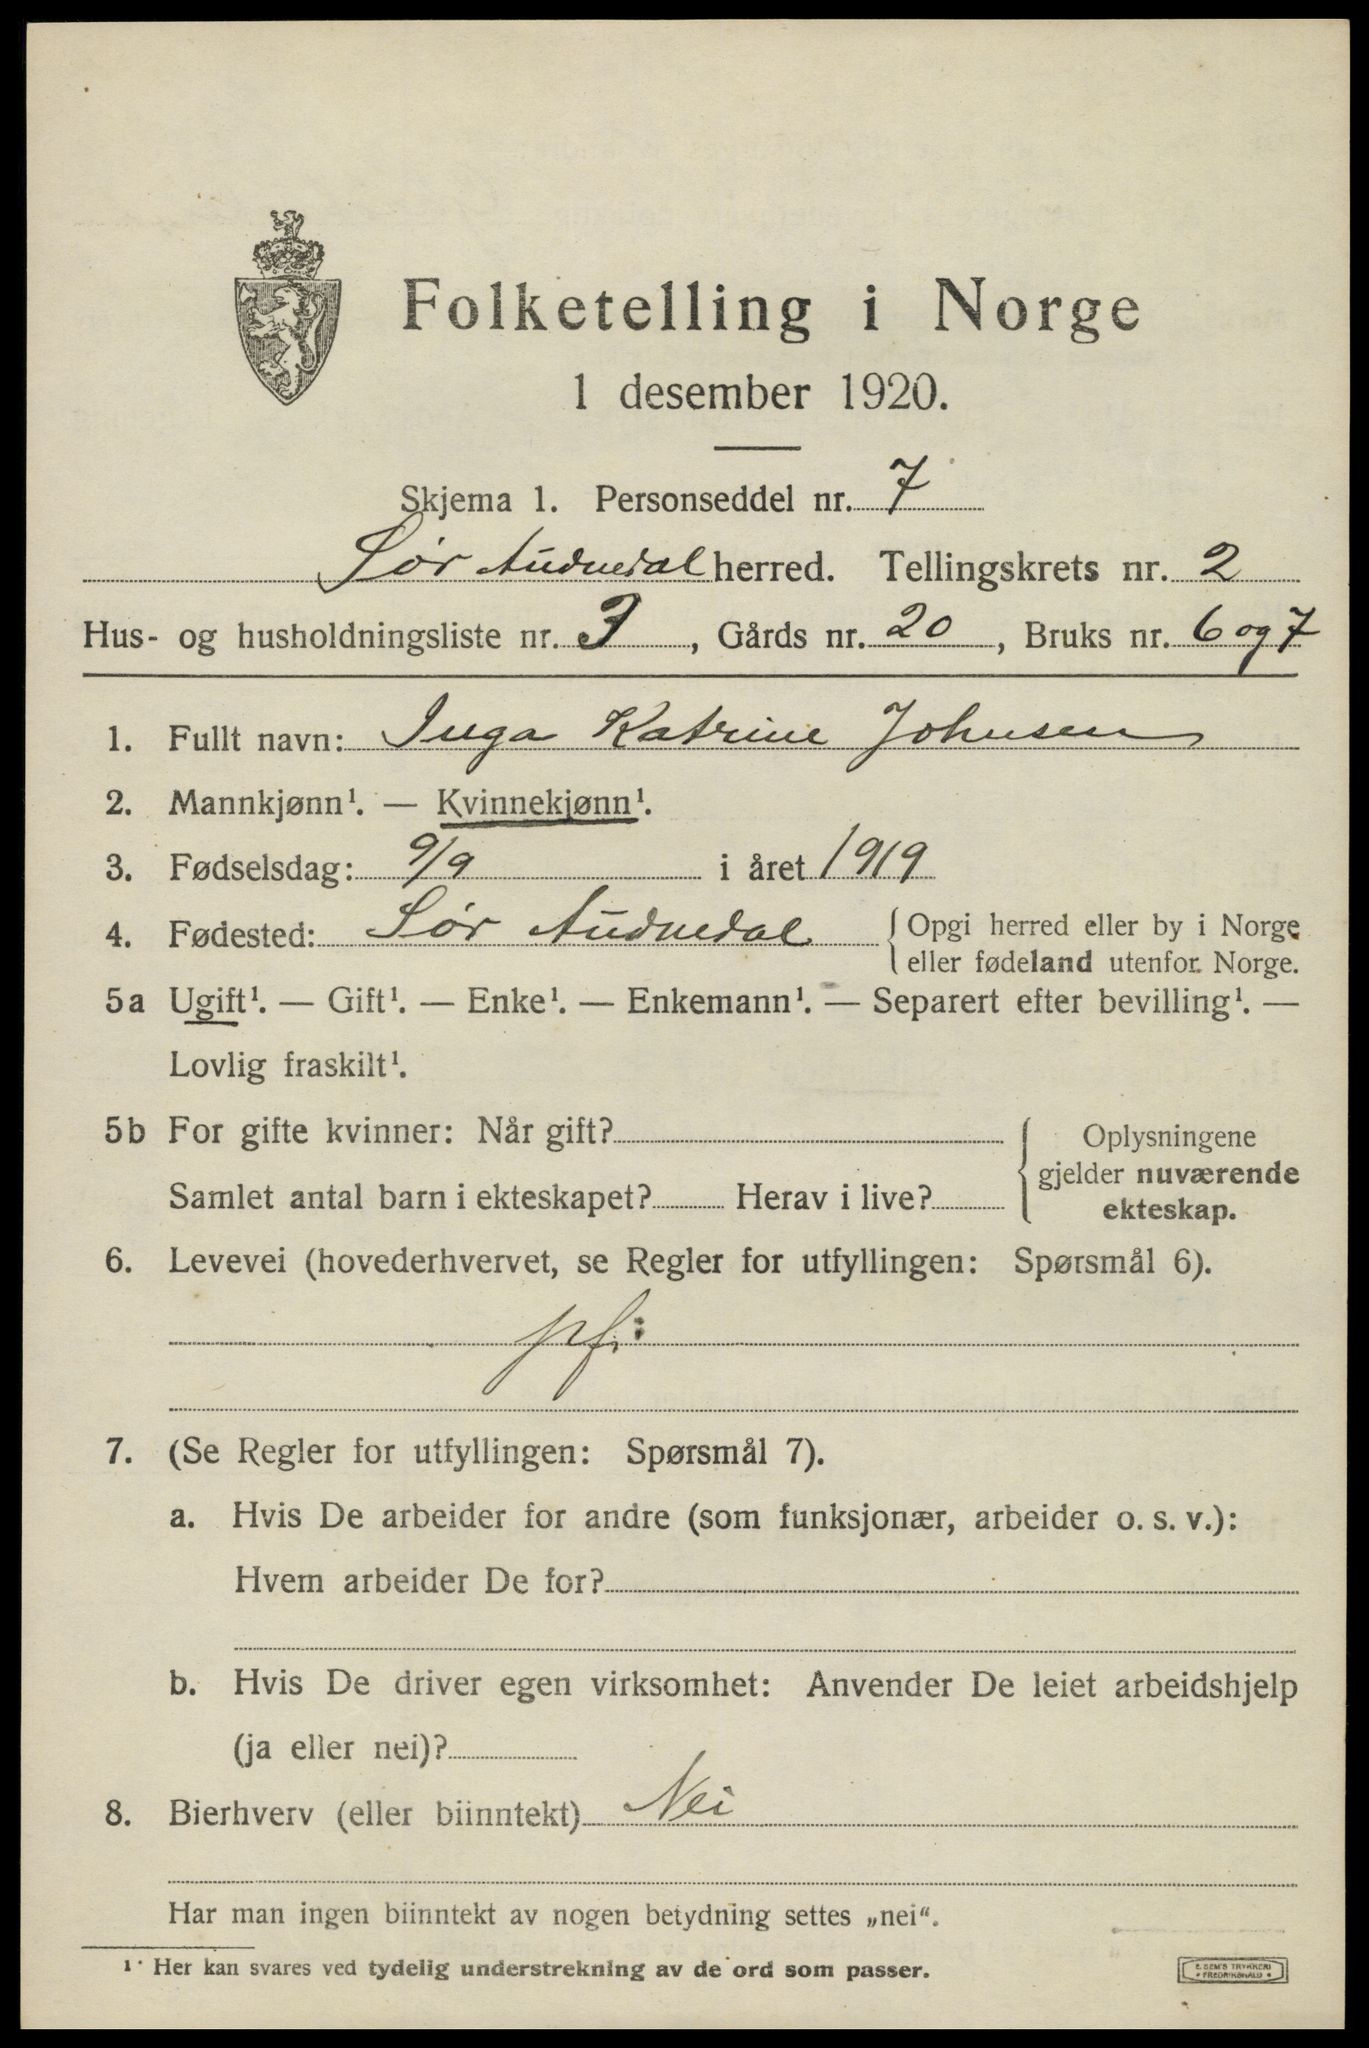 Folketelling i Norge
1 desember 1920.
Skjema 1. Personseddel nr. 7
Sør Audnedal herred. Tellingskrets nr. 2
Hus- og husholdningsliste nr. 3, Gårds nr. 20, Bruks nr. 6 og 7
1. Fullt navn: Inga Katrine Johnsen
2. Mannkjønn¹. — Kvinnekjønn¹.
3. Fødselsdag: 9/9 i året 1919
4. Fødested: Sør Audnedal { Opgi herred eller by i Norge
eller fødeland utenfor Norge.
5a Ugift¹. — Gift¹. — Enke¹. — Enkemann¹. — Separert efter bevilling¹. —
Lovlig fraskilt¹.
5b For gifte kvinner: Når gift?
Samlet antal barn i ekteskapet? Herav i live?
{ Oplysningene
gjelder nuværende
ekteskap.
6. Levevei (hovederhvervet, se Regler for utfyllingen: Spørsmål 6).
pf:
7. (Se Regler for utfyllingen: Spørsmål 7).
a. Hvis De arbeider for andre (som funksjonær, arbeider o. s. v.):
Hvem arbeider De for?
b. Hvis De driver egen virksomhet: Anvender De leiet arbeidshjelp
(ja eller nei)?
8. Bierhverv (eller biinntekt) Nei
Har man ingen biinntekt av nogen betydning settes „nei“.
¹ Her kan svares ved tydelig understrekning av de ord som passer.
E. SEM'S TRYKKERI
FREDRIKSHALD